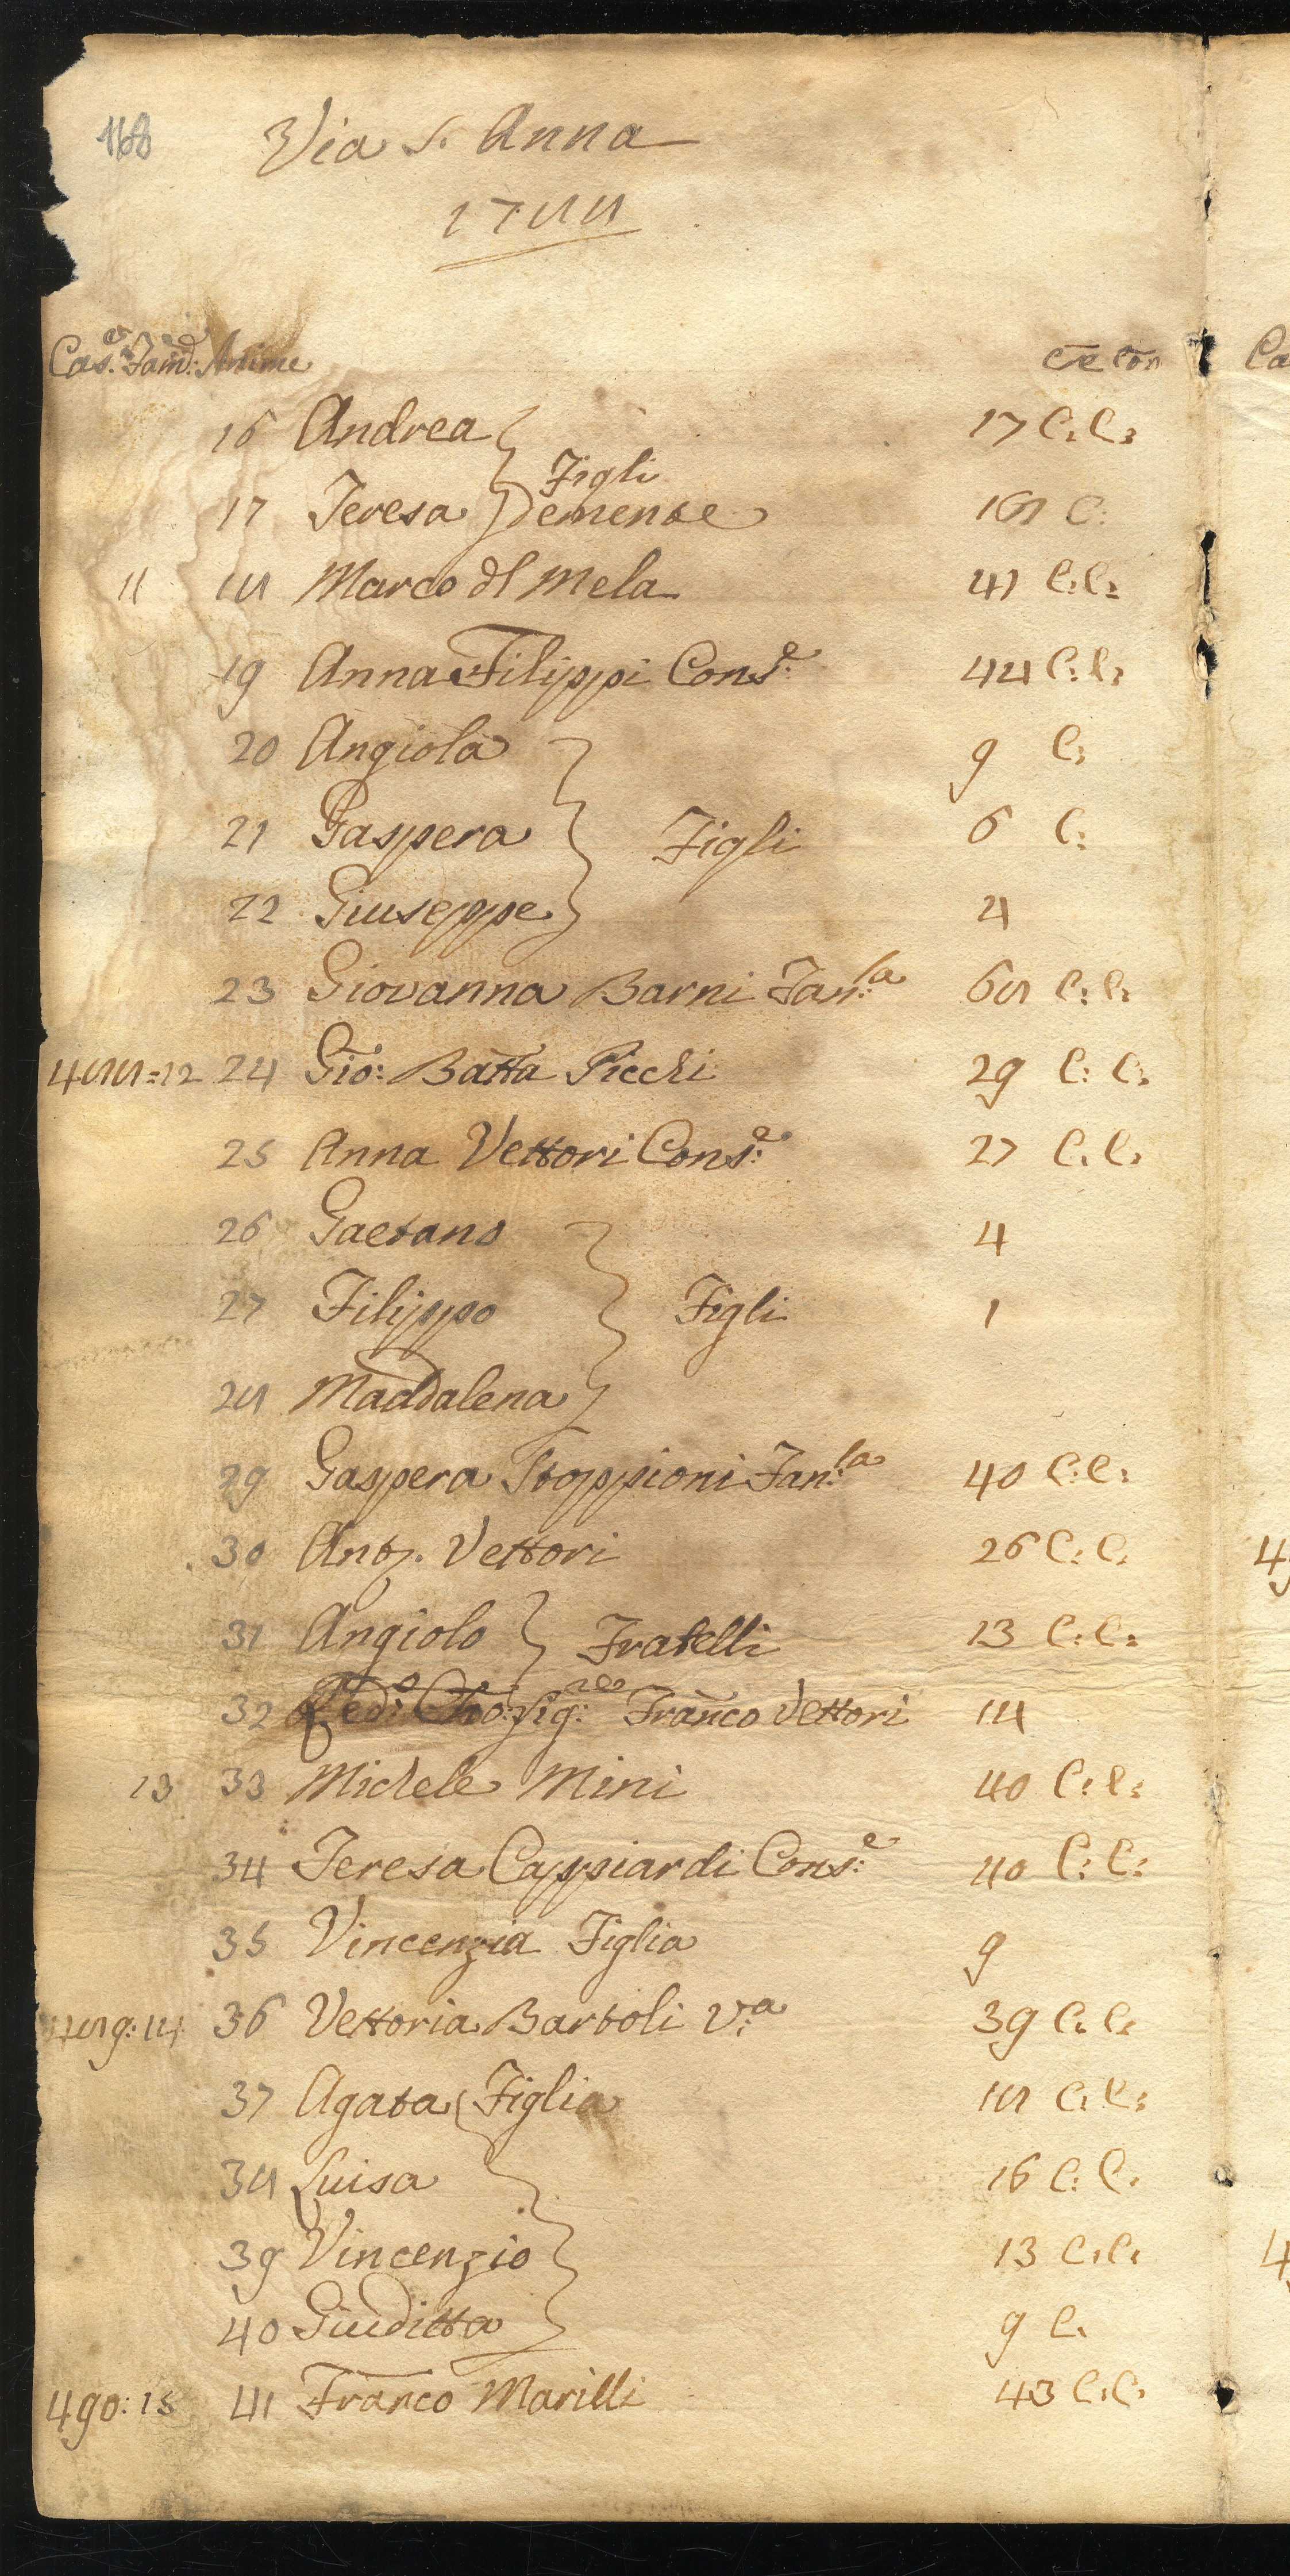 168
Via S. Anna
1788
Cas.e Fam.e Anime
16 Andrea 17 C: C:
Figli
17 Teresa Demense 18 C:
11 18 Marco dl Mela 41 C: C:
19 Anna Filippi Cons.e 48 C: C:
20 Angiola 9 C:
21 Gaspera Figli 6 C:
22 Giuseppe 4
23 Giovanna Barni Fan:la 68 C: C:
488=12 24 Gio: Batta Picchi 29 C: C:
25 Anna Vettori Cons:e 27 C: C:
26 Gaetano 4
27 Filippo Figli 1
28 Maddalena
29 Gaspera Stoppioni Fan:la 40 C: C:
30 Anto. Vettori 26 C: C:
31 Angiolo Fratelli 13 C: C:
32 Franco Vettori 14
13 33 Michele Mini 40 C: C:
34 Teresa Cappiardi Cons:e 40 C: C:
35 Vincenzia Figlia 9
489: 14 36 Vettoria Bartoli V:a 39 C: C:
37 Agata Figlia 18 C: C:
38 Luisa 16 C: C:
39 Vincenzio 13 C: C:
40 Giuditta 9 C.
490: 15 41 Franco Marilli 43 C: C: